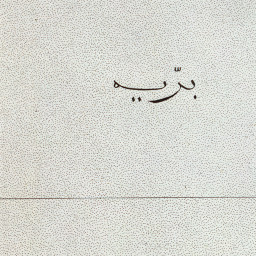 برّيه